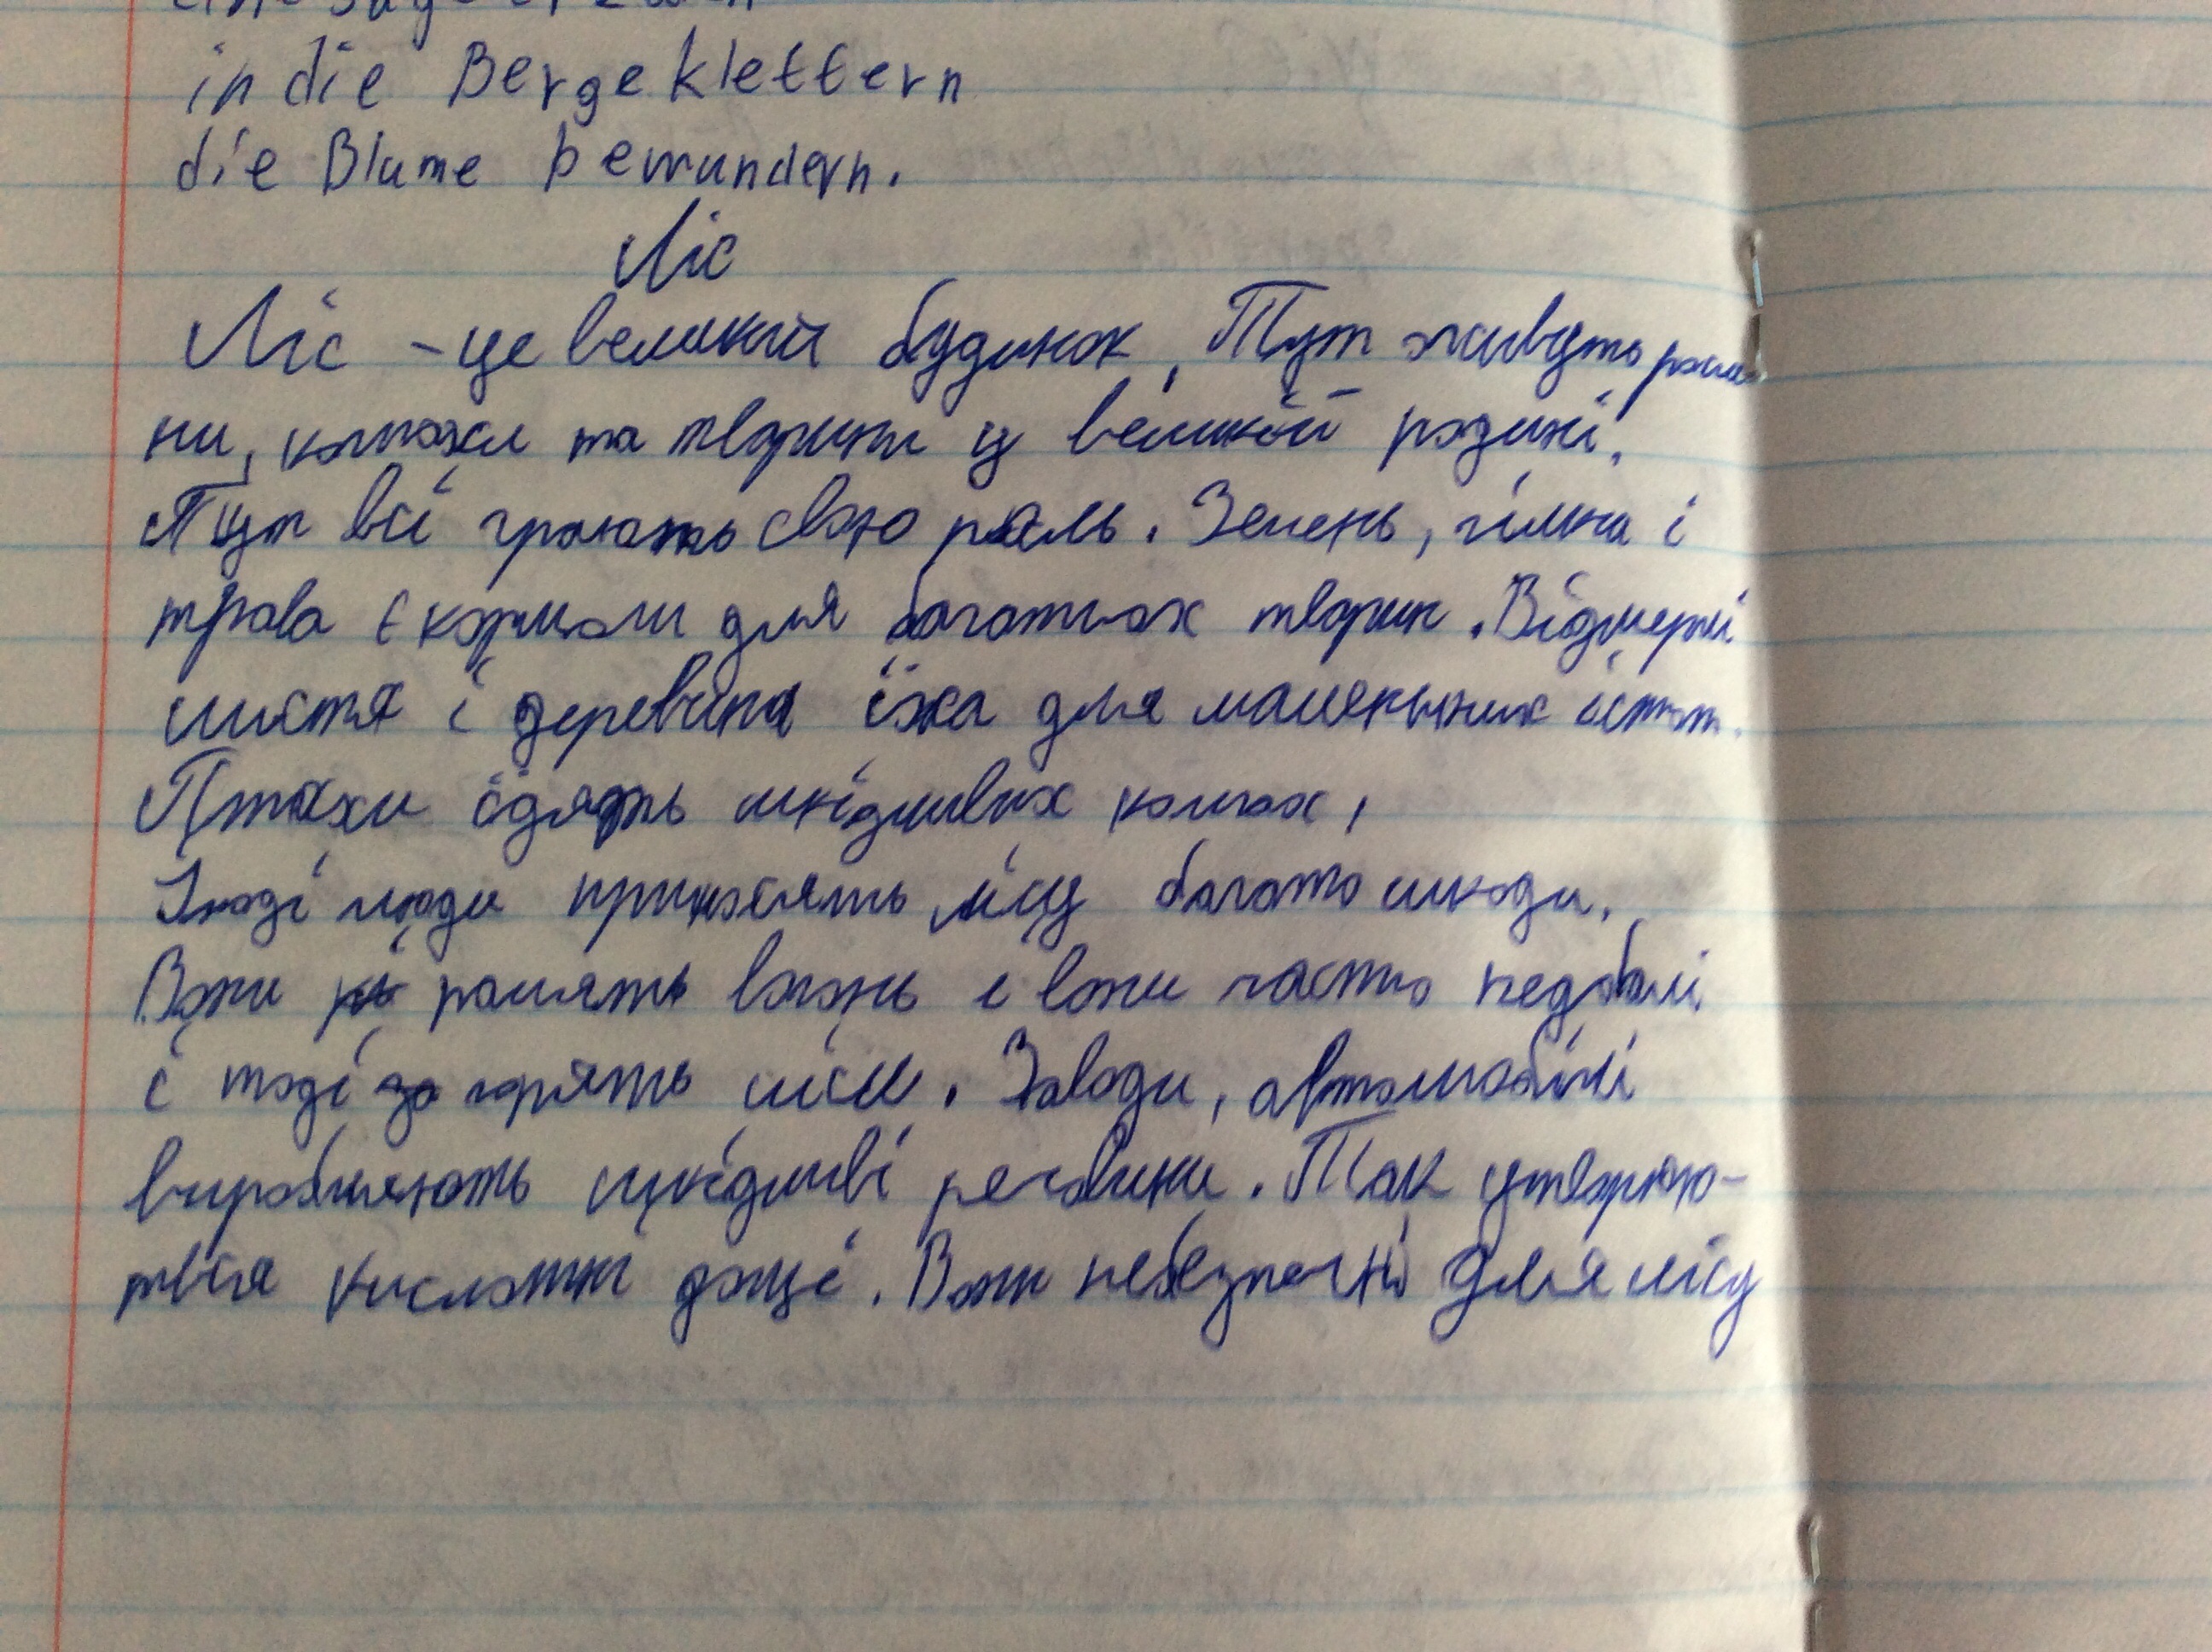 in die Berge klettern
die Blume bewundern.
Ліс
Ліс – це великий будинок. Тут живуть росли
ни, комахи та тварини у великій родині.
Тут всі грають свою роль. Зелень, гілки і
трава є кормом для багатьох тварин. Відмерлі
листя і деревина їжа для маленьких істот.
Птахи їдять шкідливих комах,
Іноді люди приносять лісу багато шкоди.
Вони палять вогонь і вони часто недбалі
і тоді горять ліси. Заводи, автомобілі
виробляють шкідливі речовини. Так утворюю-
ться кислотні дощі. Вони небезпечні для лісу